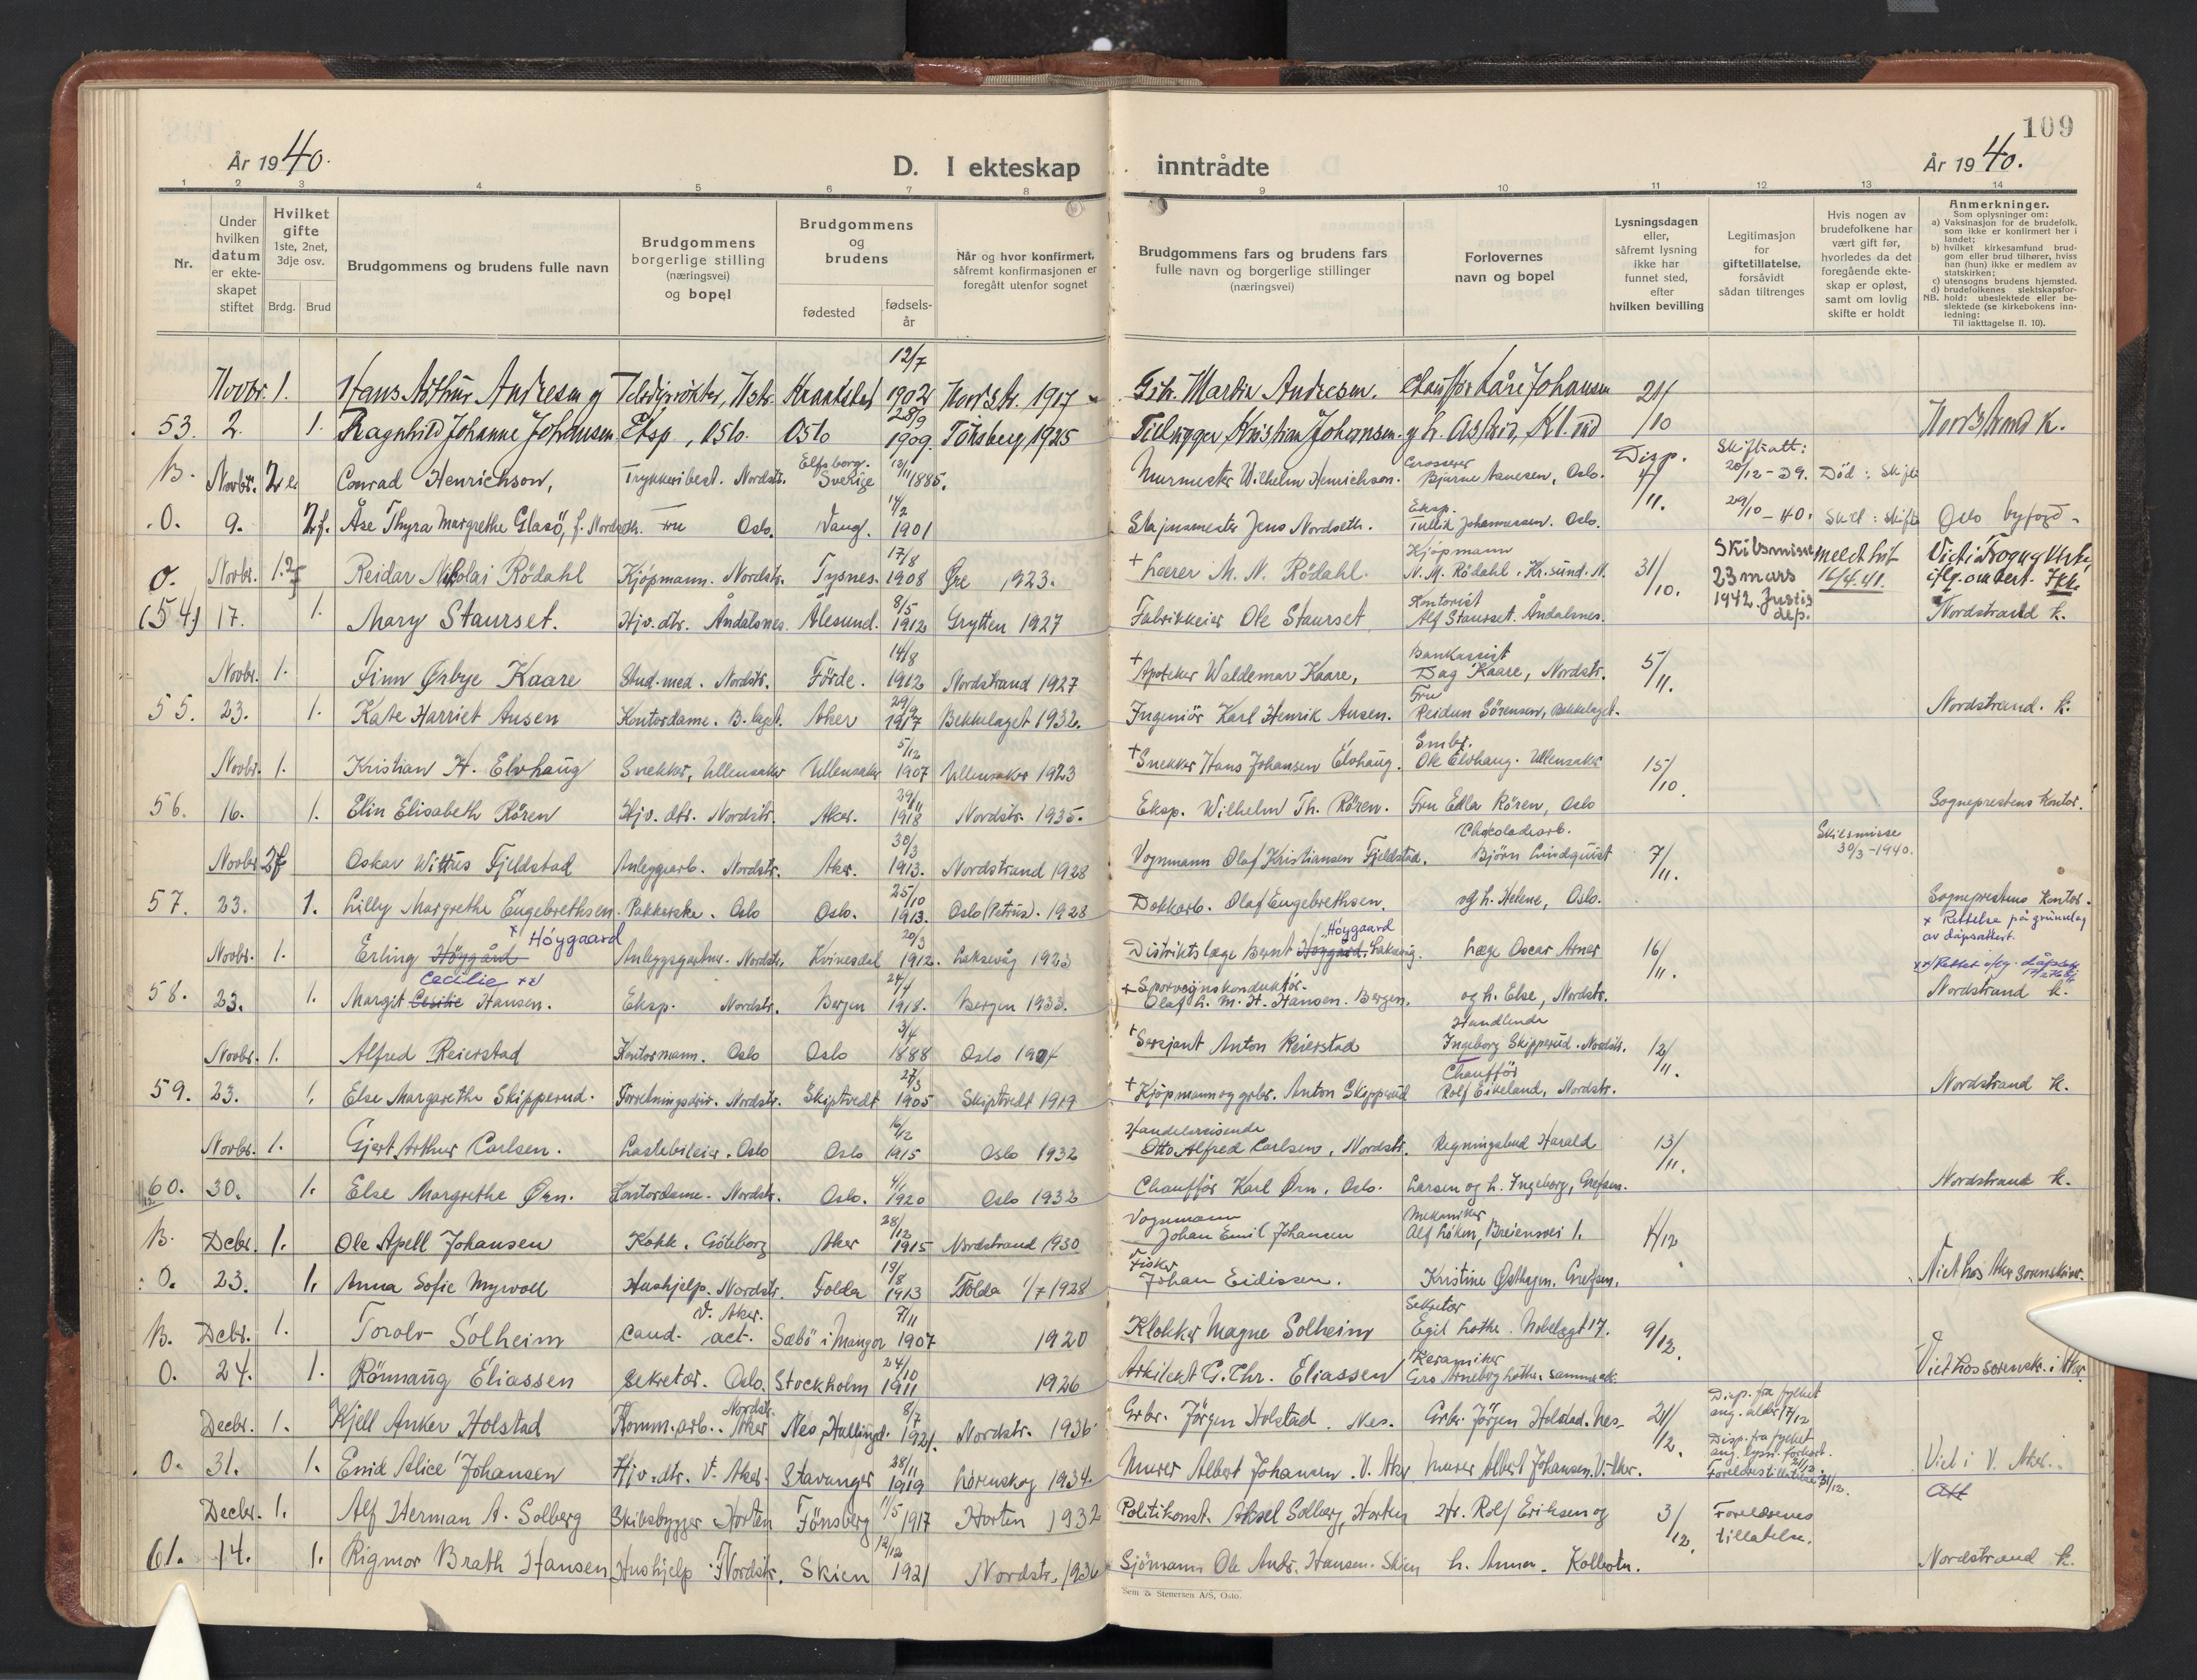 109
År 1940.
D. I ekteskap inntrådte
År 1940.
1 2 3 4 5 6 7 8 9 10 11 12 13 14
Nr.
Under hvilken datum er ekte-skapet stiftet
Hvilket gifte 1ste, 2net, 3dje osv.
Brdg. Brud
Brudgommens og brudens fulle navn
Brudgommens borgerlige stilling (næringsvei) og bopel
Brudgommens og brudens
fødested
fødsels-år
Når og hvor konfirmert, såfremt konfirmasjonen er foregått utenfor sognet
Brudgommens fars og brudens fars fulle navn og borgerlige stillinger (næringsvei)
Forlovernes navn og bopel
Lysningsdagen eller, såfremt lysning ikke har funnet sted, efter hvilken bevilling
Legitimasjon for giftetillatelse, forsåvidt sådan tiltrenges
Hvis nogen av brudefolkene har vært gift før, hvorledes da det foregående ekte-skap er opløst, samt om lovlig skifte er holdt
Anmerkninger.
Som oplysninger om:
a) Vaksinasjon for de brudefolk, som ikke er konfirmert her i landet;
b) hvilket kirkesamfund brud-gom eller brud tilhører, hviss han (hun) ikke er medlem av statskirken;
c) utensogns brudens hjemsted.
d) brudefolkenes slektskapsfor-hold: ubeslektede eller be-slektede (se kirkebokens inn-ledning:
NB.
Til iakttagelse II. 10).
Novbr. 1. Hans Arthur Andresen og 12/7 1902 Nordstr. 1917 Martin Andresen. Chauffør Kåre Johansen 21/10
53. 2. 1. Ragnhild Johanne Johansen Eksp, Oslo. Oslo 28/9 1909. Tønsberg 1925 Kristian Johansen. Nordstrand k.
B. Novbr. 2 e. Conrad Henrichson, Trykkeribest. Nordstr. Elfsborg. Sverige 13/11 1885. Murmester Wilhelm Henrichson. Grosserer Bjarne Aanesen, Oslo. Disp. 4/11. Skifteatt: 20/12-39. Død: skifte
O. 9. 2f. Åse Thyra Margrethe Glasö, f. Nordseth. Fru Oslo. Vang. 14/2 1901 Jens Nordseth. Eksp. Johannessen. Oslo. 29/10-40. Skilt: skifte Oslo byfogd.
O. Novbr. 1. 2f Reidar Nikolai Rödahl Kjöpmann. Nordstr. Tysnes. 17/8 1908 Øre 1923. + Lærer M. N. Rödahl. Kjöpmann N. M. Rödahl. Kr.sund. N. 31/10. Skilsmisse 23 mars 1942. Justis dep. meldt hit 16/4.41.
(54) 17. 1. Mary Staurset. Hjv. dtr. Åndalsnes. Ålesund. 8/5 1912 Grytten 1927 Fabrikkeier Ole Staurset Kontorist Alf Staurset. Åndalsnes. Nordstrand k.
Novbr. 1. Finn Ørbye Kaare Stud. med. Nordstr. Förde. 14/8 1912 Nordstrand 1927 + Apoteker Waldemar Kaare, Bankassist Dag Kaare, Nordstr. 5/11.
55. 23. 1. Kate Harriet Ausen Kontordame. B.laget. Aker 29/9 1917 Bekkelaget 1932. Ingeniör Karl Henrik Ausen. Fru Reidun Sörensen, Bekkelaget. Nordstrand. k.
Novbr. 1. Kristian H. Elvhaug Snekker, Ullensaker Ullensaker 5/12 1907 Ullensaker 1923 + Snekker Hans Johansen Elvhaug. Smbr. Ole Elvhaug. Ullensaker 15/10.
56. 16. 1. Elin Elisabeth Rören Hjv. dtr. Nordstr. Aker. 29/11 1918 Nordstr. 1935. Eksp. Wilhelm Th. Rören. Fru Edla Rören, Oslo Sogneprestens kontor.
Novbr 2f Oskar Wittus Fjeldstad Anleggsarb. Nordstr. Aker. 30/3 1913. Nordstrand 1928 Vognmann Olaf Kristiansen Fjeldstad. Chocoladearb. Björn Lindquist 7/11. Skilsmisse 30/3-1940.
57. 23. 1. Lilly Margrethe Engebrethsen. Pakkerske. Oslo Oslo. 25/10 1913. Oslo (Petrus). 1928 Dokkarb. Olaf Engebrethsen. og h. Helene, Oslo. Sogneprestens kontor.
x Rettelse på grunnlag av dåpsattest.
Novbr. 1. Erling Höygård x Höygaard Anleggsgartner. Nordstr. Kvinesdal 20/3 1912. Laksevåg 1923 Distriktslæge Bernt Höygård Höygaard. Laksevåg. Læge Oscar Arner 16/11.
58. 23. 1. Margit Cesilie Cecilie xx Hansen. Eksp. Nordstr. Bergen 24/4 1918. Bergen 1933. + Sporveiskonduktör Olaf L. M. H. Hansen. Bergen. og h. Else, Nordstr. Nordstrand k.
Novbr. 1. Alfred Reierstad Kontormann. Oslo Oslo 3/4 1888 Oslo 1904 + Sersjant Anton Reierstad Handlende Ingeborg Skipperud. Nordstr. 12/11.
59. 23. 1. Else Margarethe Skipperud. Forretningsdriv. Nordstr. Skiptvedt 27/3 1905 Skiptvedt 1919 + Kjöpmann og grbr. Anton Skipperud Chaufför Rolf Eikeland, Nordstr. Nordstrand k.
Novbr. 1. Gjert Arthur Carlsen. Lastebileier. Oslo Oslo 16/12 1915 Oslo 1932 Handelsreisende Otto Alfred Carlsen, Nordstr. Regningsbud Harald 13/11.
60. 30. 1. Else Margrethe Ørn. Kontordame. Nordstr. Oslo. 4/1 1920 Oslo 1932 Chaufför Karl Ørn, Oslo. Larsen og h. Ingeborg, Grefsen. Nordstrand k.
B. Decbr. 1. Ole Apell Johansen Kokk. Göteborg Aker 28/12 1915 Nordstrand 1930 Vognmann Johan Emil Johansen Mekaniker Alf Löken, Breiensvei 1. 4/12
O. 23. 1. Anna Sofie Myrvoll Hushjelp. Nordstr. Folda 19/8 1913 Folda 1/7 1928 Fisker Johan Eidissen. Kristine Østhagen, Grefsen. Viet hos Aker sorenskriver.
B. Decbr. 1. Torolv Solheim cand. act. V. Aker. Sæbö i Manger 7/11 1907 1920 Klokker Magne Solheim Sekretær Egil Lothe. Nobelsgt 17. 9/12.
O. 24. 1. Rönnaug Eliassen Sekretær. Oslo. Stockholm 24/10 1911 1926 Arkitekt G. Chr. Eliassen Keramiker Gro Arneberg Lothe. sammested. Viet hos sorenskr. i Aker.
Decbr. 1. Kjell Anker Holstad Komm. arb. Nordstr. Aker Nes, Hallingd. 8/7 1921. Nordstr. 1936 Grbr. Jörgen Holstad. Nes. Grbr. Jörgen Holstad. Nes. 21/12. Disp. fra fylket ang. alder 17/12
O. 31. 1. Enid Alice Johansen Hjv. dtr. V. Aker. Stavanger 28/11 1919 Lörenskog 1934 Murer Albert Johansen. V. Aker Murer Albert Johansen. V. Aker. Disp. fra fylket ang. lysn. forkort. 21/12. Foreldrestillatelse 31/12. Viet i V. Aker.
Att
Decbr. 1. Alf Herman A. Solberg Skibsbygger Horten Tönsberg 11/5 1917 Horten 1932 Politikonst. Aksel Solberg, Horten Hr. Rolf Eriksen og 3/12. Foreldrenes tillatelse.
61. 14. 1. Rigmor Brath Hansen Hushjelp. Nordstr. Skien 12/12 1921 Nordstr. 1936 Sjömann Ole Andr. Hansen. Skien h. Anna. Kolbotn. Nordstrand k.
Sem & Stenersen A/S, Oslo.